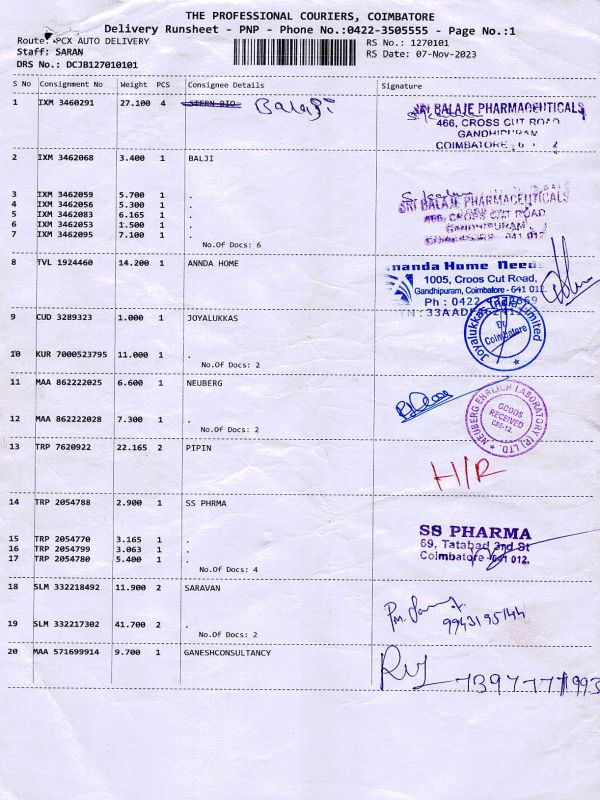 THE PROFESSIONAL COURIERS, COIMBATORE
Delivery Runsheet - PNP - Phone No.:0422-3505555 - Page No.:1
Route: PCX AUTO DELIVERY RS No.: 1270101
Staff: SARAN RS Date: 07-Nov-2023
DRS No.: DCJB127010101
S No Consignment No Weight PCS Consignee Details Signature
1 IXM 3460291 27.100 4 STERN BIO Balaji
SRI BALAJE PHARMACEUTICALS
466, CROSS CUT ROAD
GANDHIPURAM
COIMBATORE
2 IXM 3462068 3.400 1 BALJI
3 IXM 3462059 5.700 1 .
4 IXM 3462056 5.300 1 .
5 IXM 3462083 6.165 1 .
6 IXM 3462053 1.500 1 .
7 IXM 3462095 7.100 1 .
No.Of Docs: 6
SRI BALAJE PHARMACEUTICALS
466, CROSS CUT ROAD
GANDHIPURAM
COIMBATORE - 641 012
8 TVL 1924460 14.200 1 ANNDA HOME
nanda Home Needs
1005, Croos Cut Road,
Gandhipuram, Coimbatore - 641 012
Ph : 0422
9 CUD 3289323 1.000 1 JOYALUKKAS
Joyalukkas India Limited
Coimbatore
10 KUR 7000523795 11.000 1 .
No.Of Docs: 2
11 MAA 862222025 6.600 1 NEUBERG
NEUBERG EHRLICH LABORATORY (P) LTD.
GOODS
RECEIVED
CBE-12.
12 MAA 862222028 7.300 1 .
No.Of Docs: 2
13 TRP 7620922 22.165 2 PIPIN
H/R
14 TRP 2054788 2.900 1 SS PHRMA
15 TRP 2054770 3.165 1 .
16 TRP 2054799 3.063 1 .
17 TRP 2054780 5.400 1 .
No.Of Docs: 4
SS PHARMA
69, Tatabad 3rd St
Coimbatore - 641 012.
18 SLM 332218492 11.900 2 SARAVAN
9943195144
19 SLM 332217302 41.700 2 .
No.Of Docs: 2
20 MAA 571699914 9.700 1 GANESHCONSULTANCY